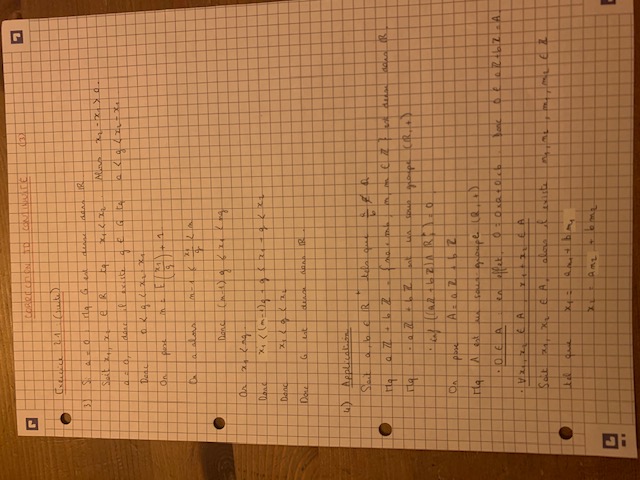 CORRECTION TD CONTINUITÉ (2)
Exercice 4.1 : (suite)
3) Si a = 0, Mq G est dense dans ℝ
Soit x₁, x₂ ∈ ℝ tq x₁ < x₂ Alors x₂ - x₁ > 0.
a = 0, donc il existe g ∈ G tq a < g < x₂ - x₁
Donc 0 < g < x₂ - x₁
On pose n = E(x₁/g) + 1
On a alors n-1 ≤ x₁/g < n
Donc (n-1)g ≤ x₁ < ng
Or x₁ < ng
Donc x₁ < (n-1)g + g ≤ x₁ + g < x₂
Donc x₁ < g < x₂
Donc G est dense dans ℝ.
4) Application
Soit a, b ∈ ℝ* tels que a/b ∉ ℚ
Mq aℤ + bℤ = {na + mb, n, m ∈ ℤ} est dense dans ℝ.
Mq · aℤ + bℤ est un sous groupe (ℝ, +)
· inf ((aℤ + bℤ) ∩ ℝ*₊) = 0
On pose A = aℤ + bℤ
Mq A est un sous groupe (ℝ, +)
· 0 ∈ A : en effet, 0 = 0×a + 0×b donc 0 ∈ aℤ + bℤ = A.
· ∀x₁, x₂ ∈ A, x₁ + x₂ ∈ A
Soit x₁, x₂ ∈ A, alors il existe n₁, n₂, m₁, m₂ ∈ ℤ
tel que x₁ = an₁ + bm₁
x₂ = an₂ + bm₂